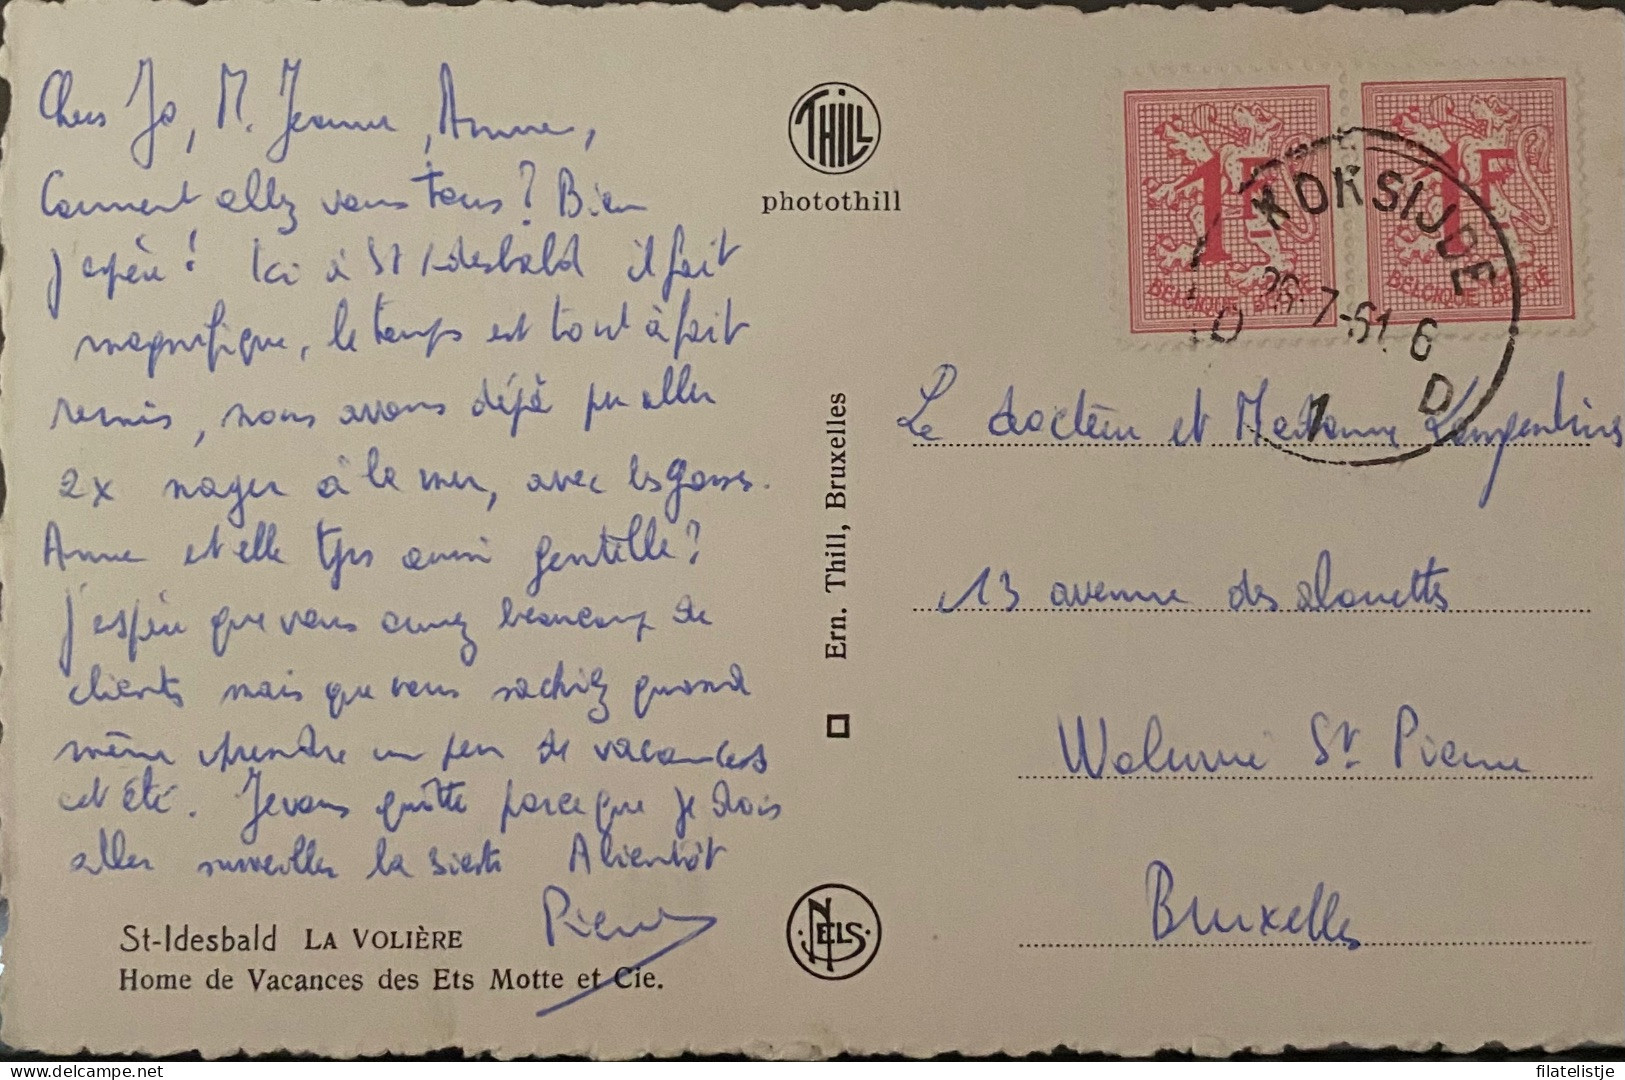 Chers Jo, M. Jeanne, Anne,
Comment allez vous tous? Bien
j'espère! Ici à St Idesbald il fait
magnifique, le temps est tout à fait
remis, nous avons déjà pu aller
2x nager à la mer, avec les gosses.
Anne est elle tjrs aussi gentille?
j'espère que vous aurez beaucoup de
clients mais que vous sachiez quand
même prendre un peu de vacances
cet été. Je vous quitte parce que je dois
aller surveiller la sieste A bientôt
Pierre
St-Idesbald LA VOLIÈRE
Home de Vacances des Ets Motte et Cie.
THILL
photothill
Ern. Thill, Bruxelles
NELS
1F
BELGIQUE BELGIE
1F
BELGIQUE BELGIE
KOKSIJDE
26.7-61. 6
1 D
Le docteur et Madame
13 avenue des alouettes
Woluwé St Pierre
Bruxelles
filatelistje